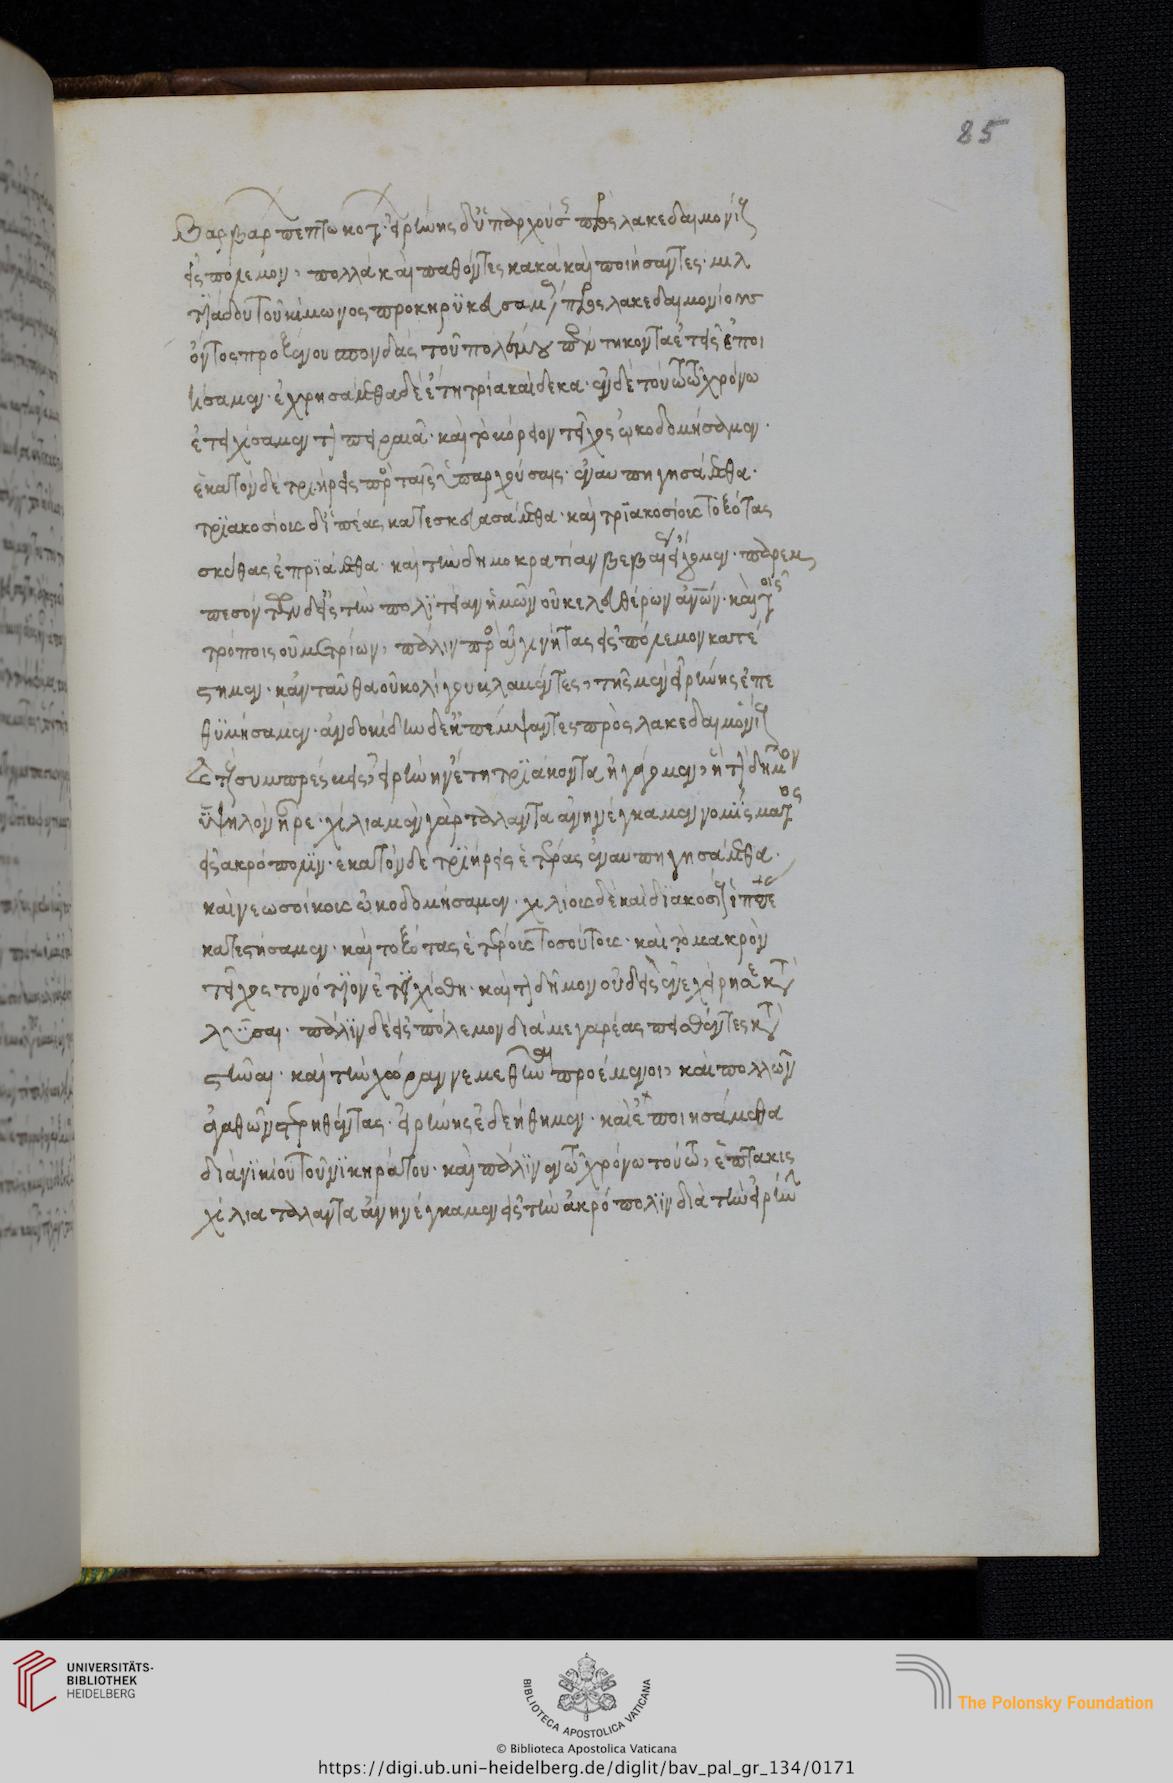 85
βαρβάρων πεπτωκότων. εἰρήνης δ' ὑπαρχούσης πρὸς λακεδαιμονίους
εἰς πόλεμον, πολλὰ καὶ παθόντες κακὰ καὶ ποιήσαντες. μιλ
τϊάδου τοῦ κίμωνος προκηρϋκευσαμένου πρὸς λακεδαιμονίους
ὄντος προξένου σπονδὰς τοῦ πολέμου πεντήκοντα ἔτη ἐποι
ησάμεν. ἐχρησάμεθα δὲ ἔτη τρία καίδεκα. ἐν δὲ τούτῳ τῷ χρόνῳ
ἐτειχίσαμεν τὸν πειραιᾶ. καὶ τὸ βόρειον τεῖχος ὠκοδομήσαμεν.
ἑκατὸν δὲ τριήρεις πρὸς ταῖς ὑπαρχούσαις. ἐναυπηγησάμεθα.
τρϊακοσίους δ' ἱππέας κατεσκευασάμεθα. καὶ τρϊακοσίους τοξότας
σκύθας ἐπριάμεθα. καὶ τὴν δημοκρατίαν βεβαίαν εἴχομεν. παρεμ
πεσόντων δ' εἰς τὴν πολιτείαν ἡμῶν οὐκ ἐλευθέρων ἀνθρώπων. καὶ τοῖς
τρόποις οὐ μετρίων, πάλιν πρὸς αἰγινήτας εἰς πόλεμον κατέ
στημεν. κἀνταῦθα οὐκ ὀλίγου βλαβέντες, τῆς μὲν εἰρήνης ἐπε
θϋμήσαμεν. ἀνδοκίδην δὲ ἐκπέμψαντες πρὸς λακεδαιμονίους
καὶ τοὺς συμπρέσβεις, εἰρήνην ἔτη τριάκοντα ἠγάγομεν, ἣ τὸν δῆμον
ὑψηλὸν ἦρε. χίλια μὲν γὰρ τάλαντα ἀνηνέγκαμεν νομίσματος
εἰς ἀκρόπολιν. ἑκατὸν δὲ τριήρεις ἑτέρας ἐναυπηγησάμεθα.
καὶ νεωσοίκους ὠκοδομήσαμεν. χιλίους δὲ καὶ διακοσίους ἱππέας
κατεστήσαμεν. καὶ τοξότας ἑτέρους τοσούτους. καὶ τὸ μακρὸν
τεῖχος τὸ νότιον ἐτειχίσθη. καὶ τὸν δῆμον οὐδεὶς ἐνεχείρησε κατα
λῦσαι. πάλιν δὲ εἰς πόλεμον διὰ μεγαρέας πεισθέντες κατα
στῆναι. καὶ τὴν χώραν τεμηθῆναι προέμενοι, καὶ πολλῶν
ἀγαθῶν στερηθέντες. εἰρήνης ἐδεήθημεν. καὶ ἐποιησάμεθα
διὰ νικίου τοῦ νικηράτου. καὶ πάλιν ἐν τῷ χρόνῳ τούτῳ, ἑπτακις
χίλια τάλαντα ἀνηνέγκαμεν εἰς τὴν ἀκρόπολιν διὰ τὴν εἰρήνην
UNIVERSITÄTS-
BIBLIOTHEK
HEIDELBERG
BIBLIOTECA APOSTOLICA VATICANA
The Polonsky Foundation
© Biblioteca Apostolica Vaticana
https://digi.ub.uni-heidelberg.de/diglit/bav_pal_gr_134/0171